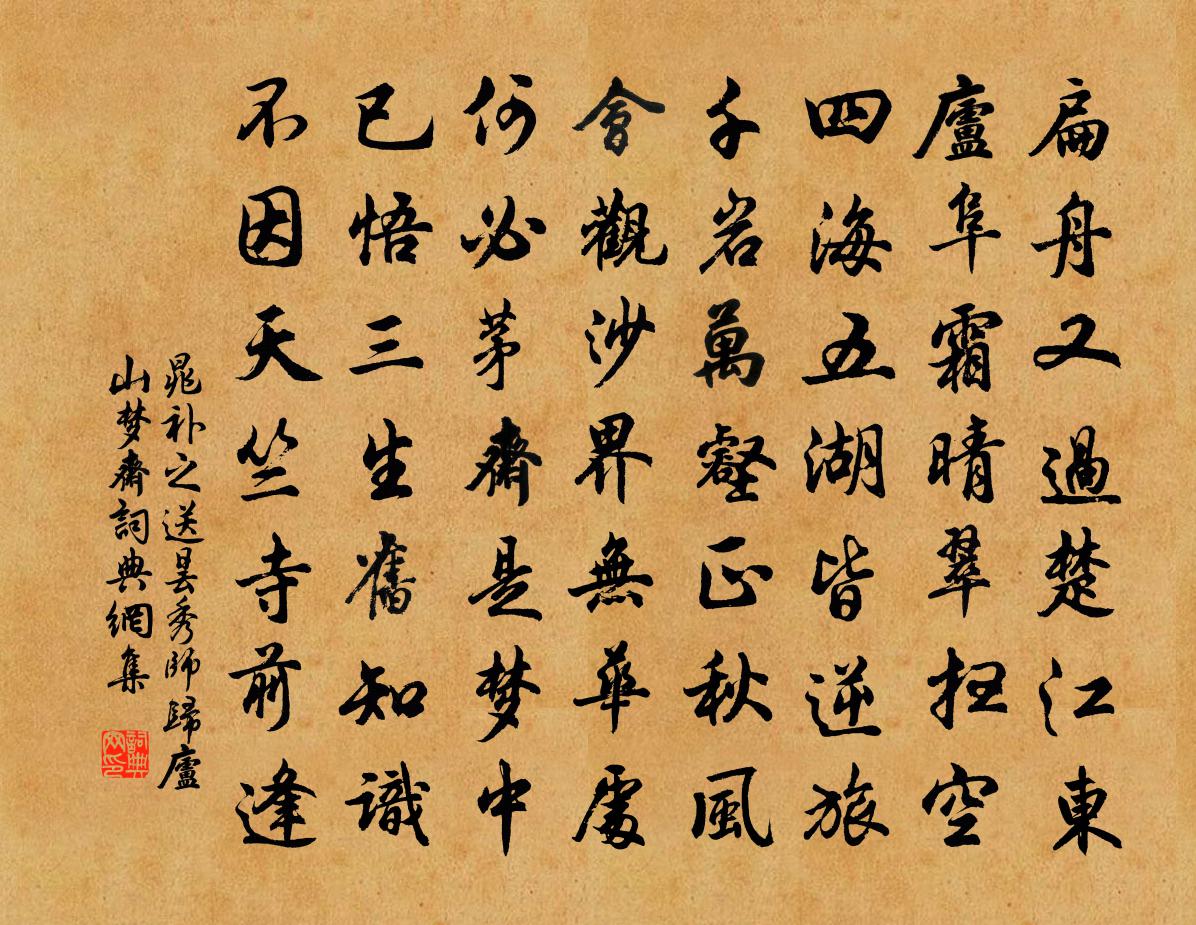 扁舟又過楚江東
廬阜霜晴翠抂空
四海五湖皆逆旅
千岩萬壑正秋風
會觀沙界無華處
何必茅齋是梦中
已悟三生舊知識
不因天竺寺前逢
晁补之送昙秀師歸廬
山梦齋詞典網集
詞典网印